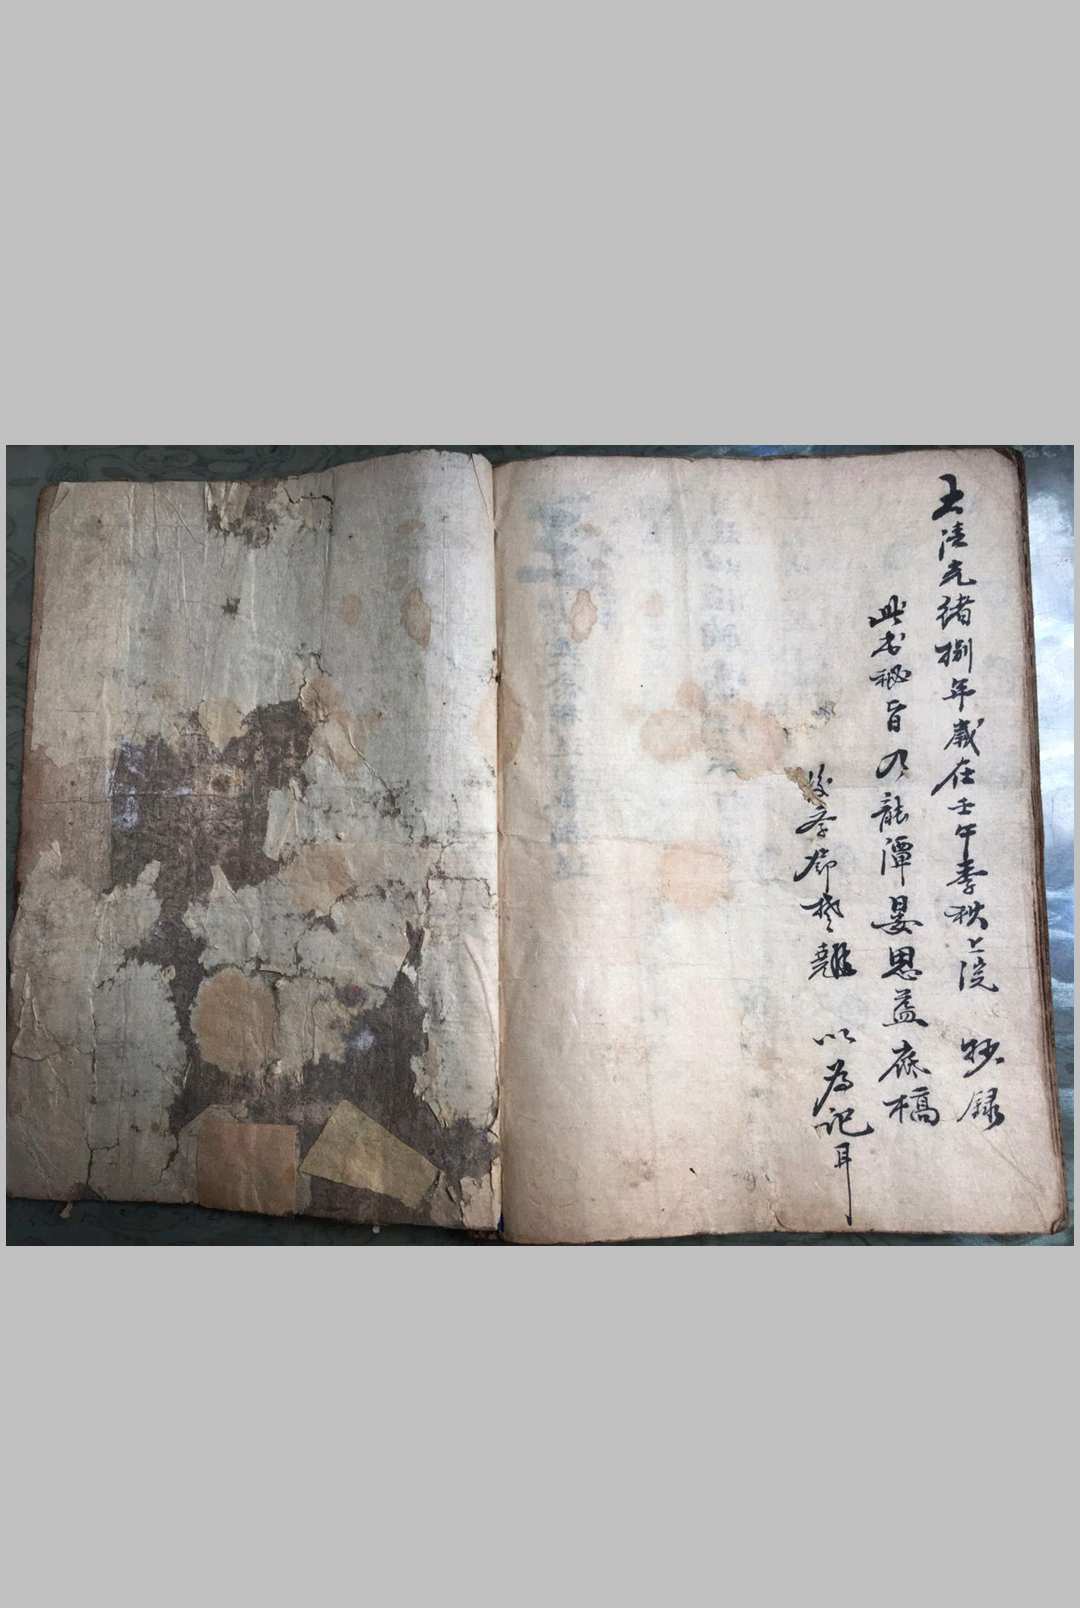 大清光绪捌年歲在壬午季秋上浣 抄錄
此书秘旨乃龍潭晏思益底稿
後学 以為記耳